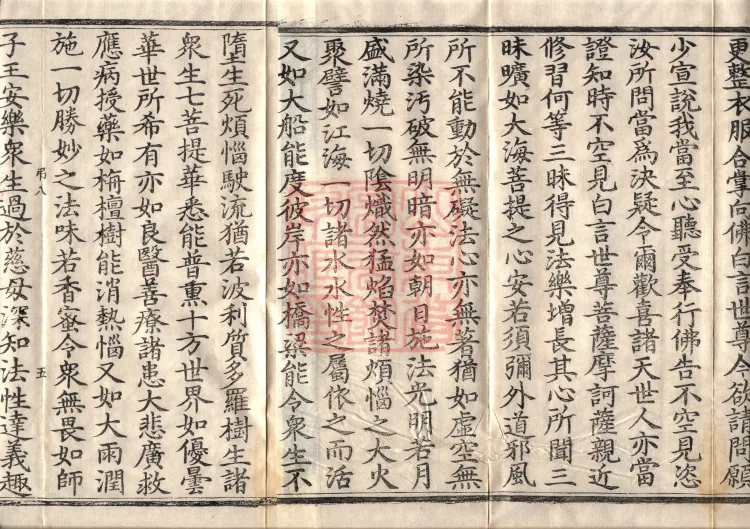 更整衣服合掌向佛白言世尊今欲請問願
少宣說我當至心聽受奉行佛告不空見恣
汝所問當爲決疑令爾歡喜諸天世人亦當
證知時不空見白言世尊菩薩摩訶薩親近
修習何等三昧得見法樂增長其心所聞三
昧曠如大海菩提之心安若須彌外道邪風
所不能動於無礙法心亦無著猶如虛空無
所染污破無明暗亦如朝日施法光明若月
盛滿燒一切陰熾然猛焰焚諸煩惱之大火
聚譬如江海一切諸水水性之屬依之而活
又如大船能度彼岸亦如橋梁能令衆生不
墮生死煩惱駛流猶若波利質多羅樹生諸
衆生七菩提華悉能普熏十方世界如優曇
華世所希有亦如良醫善療諸患大悲廣救
應病授藥如栴檀樹能消熱惱又如大雨潤
施一切勝妙之法味若香蜜令衆無畏如師
弔八
五
子王安樂衆生過於慈母深知法性達義趣